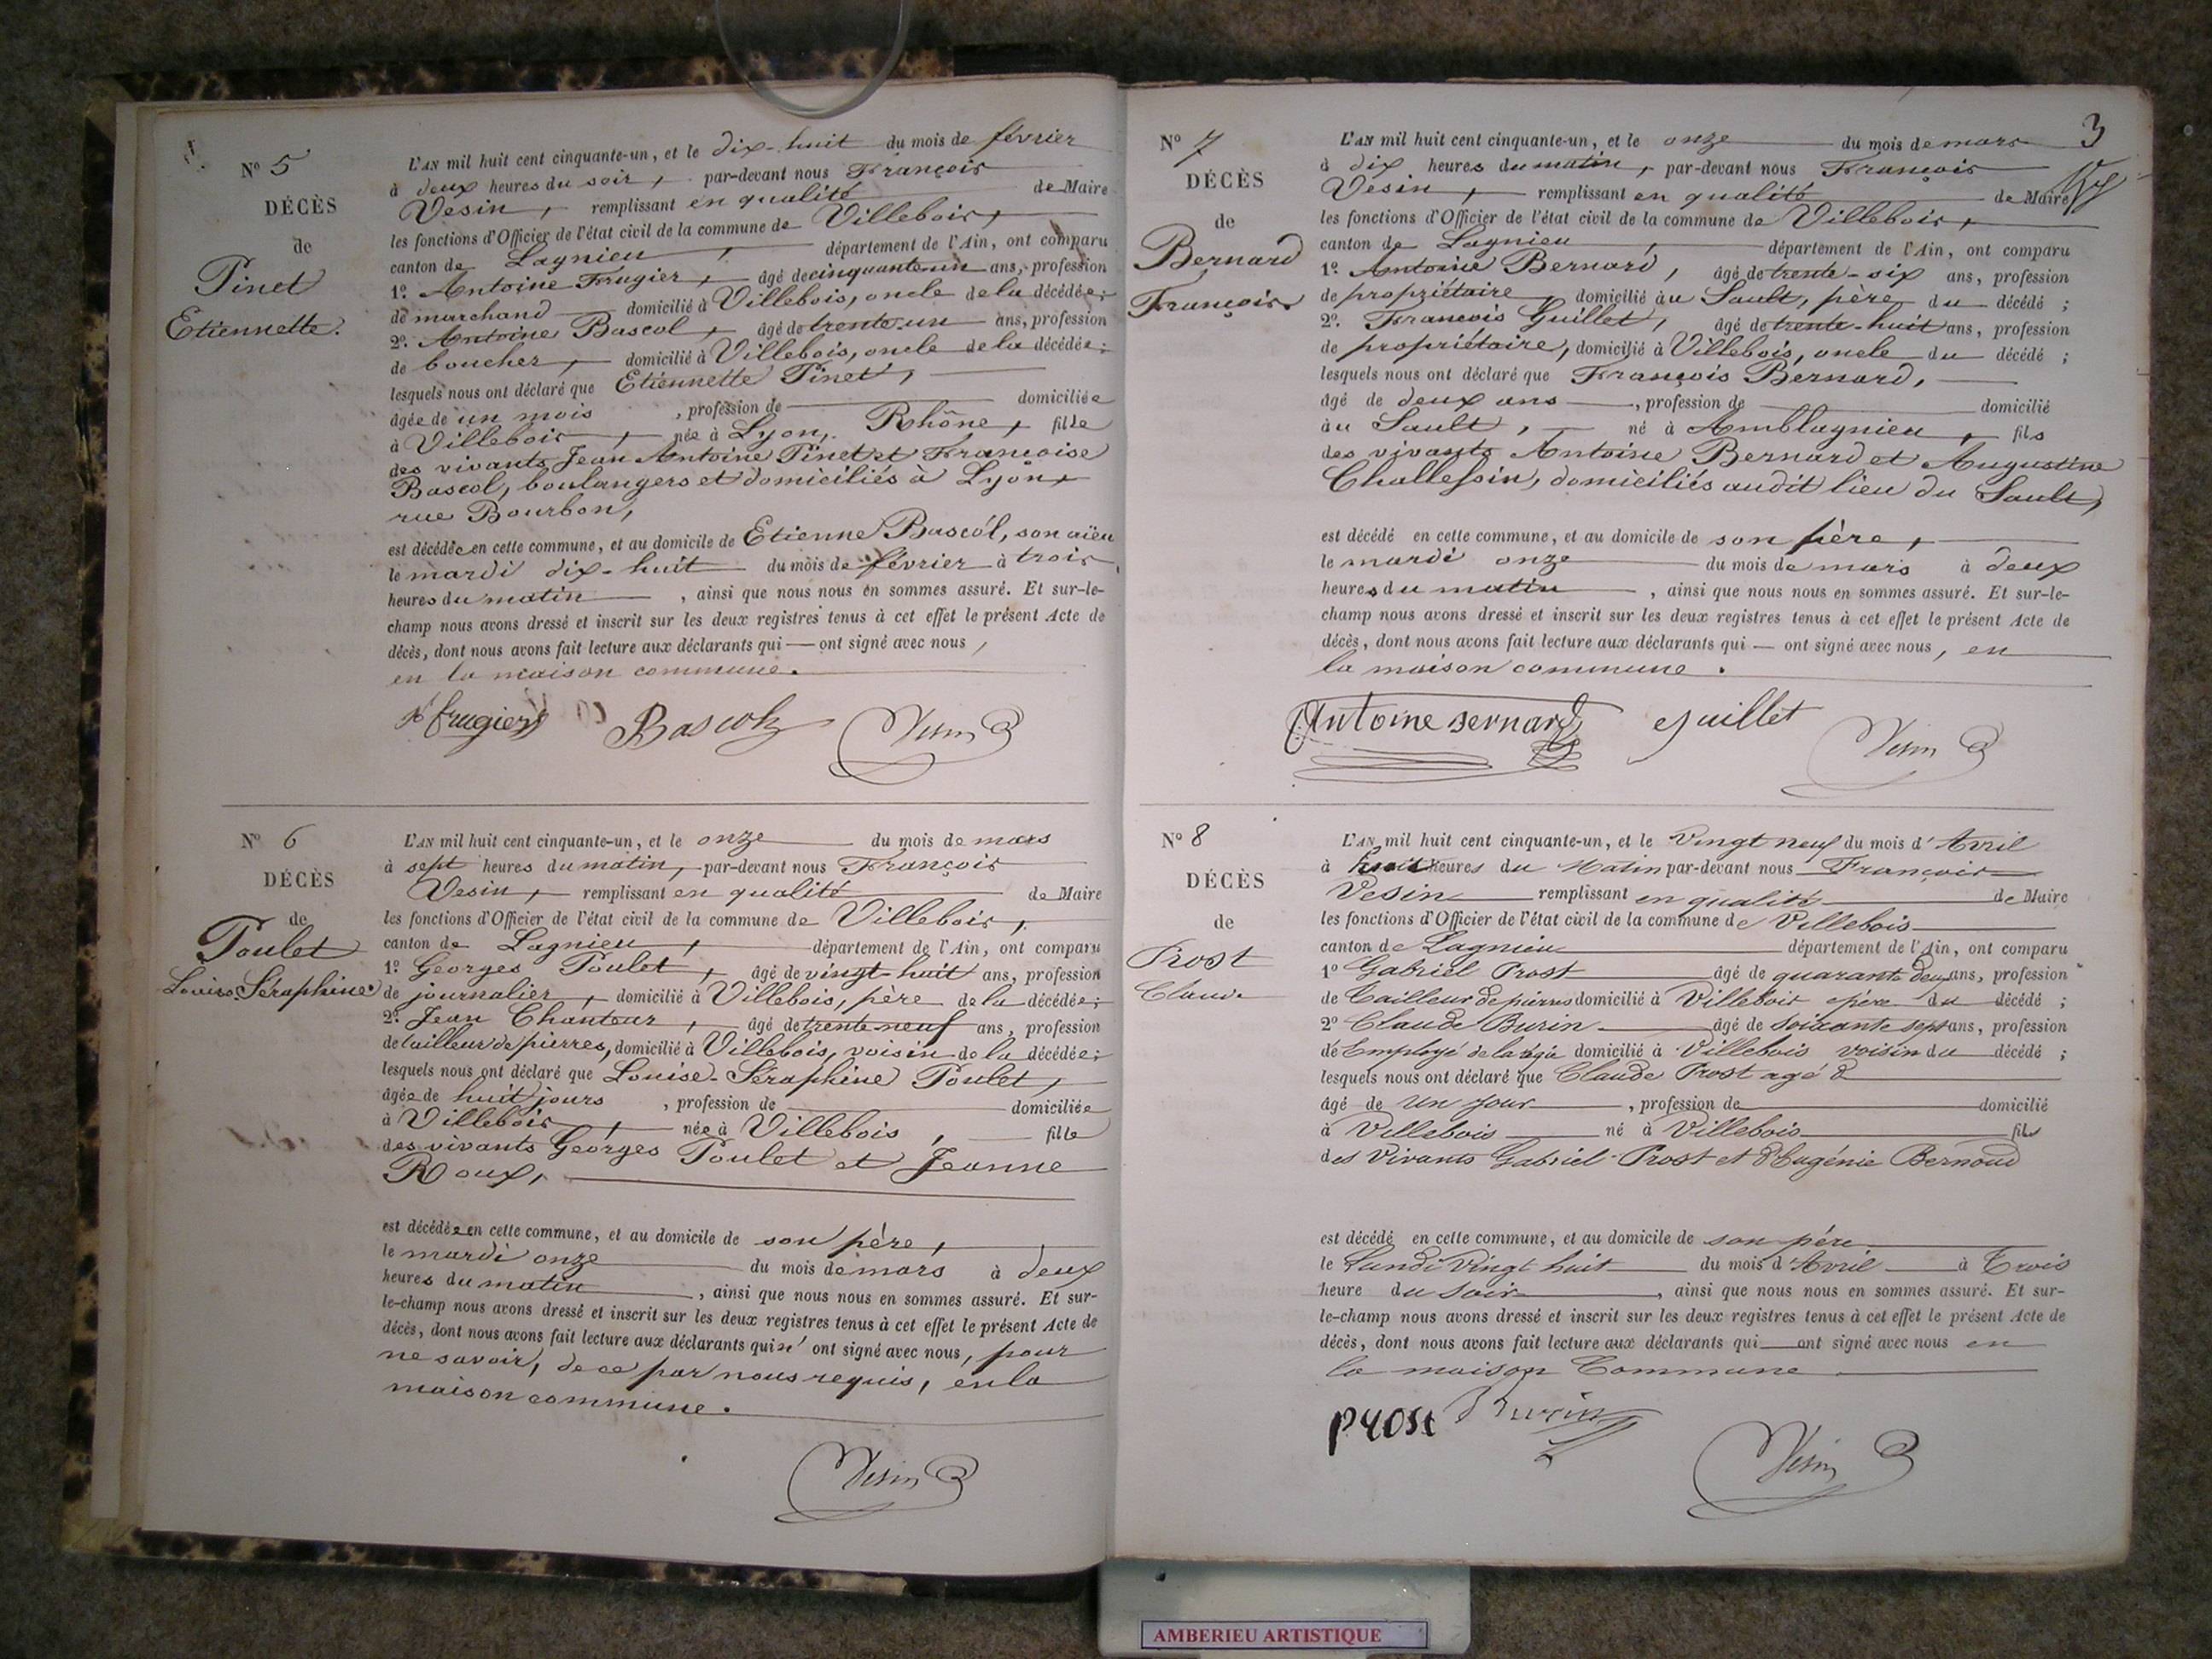 Nº 5
DÉCÈS
de
Pinet
Etiennette.
L'AN mil huit cent cinquante-un, et le dix-huit du mois de février
à deux heures du soir, par-devant nous François
Vesin, remplissant en qualité de Maire
les fonctions d'Officier de l'état civil de la commune de Villebois,
canton de Lagnieu, département de l'Ain, ont comparu
1º. Antoine Frugier, âgé de cinquante un ans, profession
de marchand domicilié à Villebois, oncle de la décédée;
2º. Antoine Bascol, âgé de trente un ans, profession
de boucher, domicilié à Villebois, oncle de la décédée;
lesquels nous ont déclaré que Etiennette Pinet,
âgée de un mois, profession de domiciliée
à Villebois, née à Lyon, Rhône, fille
des vivants Jean Antoine Pinet et Françoise
Bascol, boulangers et domiciliés à Lyon,
rue Bourbon,
est décédée en cette commune, et au domicile de Etienne Bascol, son aïeu
le mardi dix-huit du mois de février à trois
heures du matin, ainsi que nous nous en sommes assuré. Et sur-le-
champ nous avons dressé et inscrit sur les deux registres tenus à cet effet le présent Acte de
décès, dont nous avons fait lecture aux déclarants qui — ont signé avec nous,
en la maison commune.
frugier Bascol Vesin
Nº 6
DÉCÈS
de
Poulet
Louise Séraphine
L'AN mil huit cent cinquante-un, et le onze du mois de mars
à sept heures du matin, par-devant nous François
Vesin, remplissant en qualité de Maire
les fonctions d'Officier de l'état civil de la commune de Villebois,
canton de Lagnieu, département de l'Ain, ont comparu
1º. Georges Poulet, âgé de vingt-huit ans, profession
de journalier, domicilié à Villebois, père de la décédée;
2º. Jean Chanteur, âgé de trente neuf ans, profession
de tailleur de pierres, domicilié à Villebois, voisin de la décédée;
lesquels nous ont déclaré que Louise-Séraphine Poulet,
âgée de huit jours, profession de domiciliée
à Villebois, née à Villebois, fille
des vivants Georges Poulet et Jeanne
Roux,
est décédée en cette commune, et au domicile de son père,
le mardi onze du mois de mars à deux
heures du matin, ainsi que nous nous en sommes assuré. Et sur-
le-champ nous avons dressé et inscrit sur les deux registres tenus à cet effet le présent Acte de
décès, dont nous avons fait lecture aux déclarants qui n' ont signé avec nous, pour
ne savoir, de ce par nous requis, en la
maison commune.
Vesin
3
Nº 7
DÉCÈS
de
Bernard
François
L'AN mil huit cent cinquante-un, et le onze du mois de mars
à dix heures du matin, par-devant nous François
Vesin, remplissant en qualité de Maire
les fonctions d'Officier de l'état civil de la commune de Villebois,
canton de Lagnieu, département de l'Ain, ont comparu
1º. Antoine Bernard, âgé de trente-six ans, profession
de propriétaire, domicilié au Sault, père du décédé;
2º. François Guillet, âgé de trente-huit ans, profession
de propriétaire, domicilié à Villebois, oncle du décédé;
lesquels nous ont déclaré que François Bernard,
âgé de deux ans, profession de domicilié
au Sault, né à Amblagnieu, fils
des vivants Antoine Bernard et Augustine
Challessin, domiciliés audit lieu du Sault,
est décédé en cette commune, et au domicile de son père,
le mardi onze du mois de mars à deux
heures du matin, ainsi que nous nous en sommes assuré. Et sur-le-
champ nous avons dressé et inscrit sur les deux registres tenus à cet effet le présent Acte de
décès, dont nous avons fait lecture aux déclarants qui — ont signé avec nous, en
la maison commune.
Antoine Bernard guillet Vesin
Nº 8
DÉCÈS
de
Prost
Claude
L'AN mil huit cent cinquante-un, et le Vingt neuf du mois d'Avril
à huit heures du Matin par-devant nous François
Vesin remplissant en qualité de Maire
les fonctions d'Officier de l'état civil de la commune de Villebois
canton de Lagnieu département de l'Ain, ont comparu
1º Gabriel Prost âgé de quarante deux ans, profession
de Tailleur de pierres domicilié à Villebois père du décédé;
2º Claude Burin âgé de soixante sept ans, profession
de Employé de la régie domicilié à Villebois voisin du décédé;
lesquels nous ont déclaré que Claude Prost agé d
âgé de un jour, profession de domicilié
à Villebois né à Villebois fils
des Vivants Gabriel Prost et d'Eugénie Bernoud
est décédé en cette commune, et au domicile de son père
le Lundi Vingt huit du mois d'Avril à Trois
heure du Soir, ainsi que nous nous en sommes assuré. Et sur-
le-champ nous avons dressé et inscrit sur les deux registres tenus à cet effet le présent Acte de
décès, dont nous avons fait lecture aux déclarants qui ont signé avec nous en
la maison Commune
prost Burin Vesin
AMBERIEU ARTISTIQUE